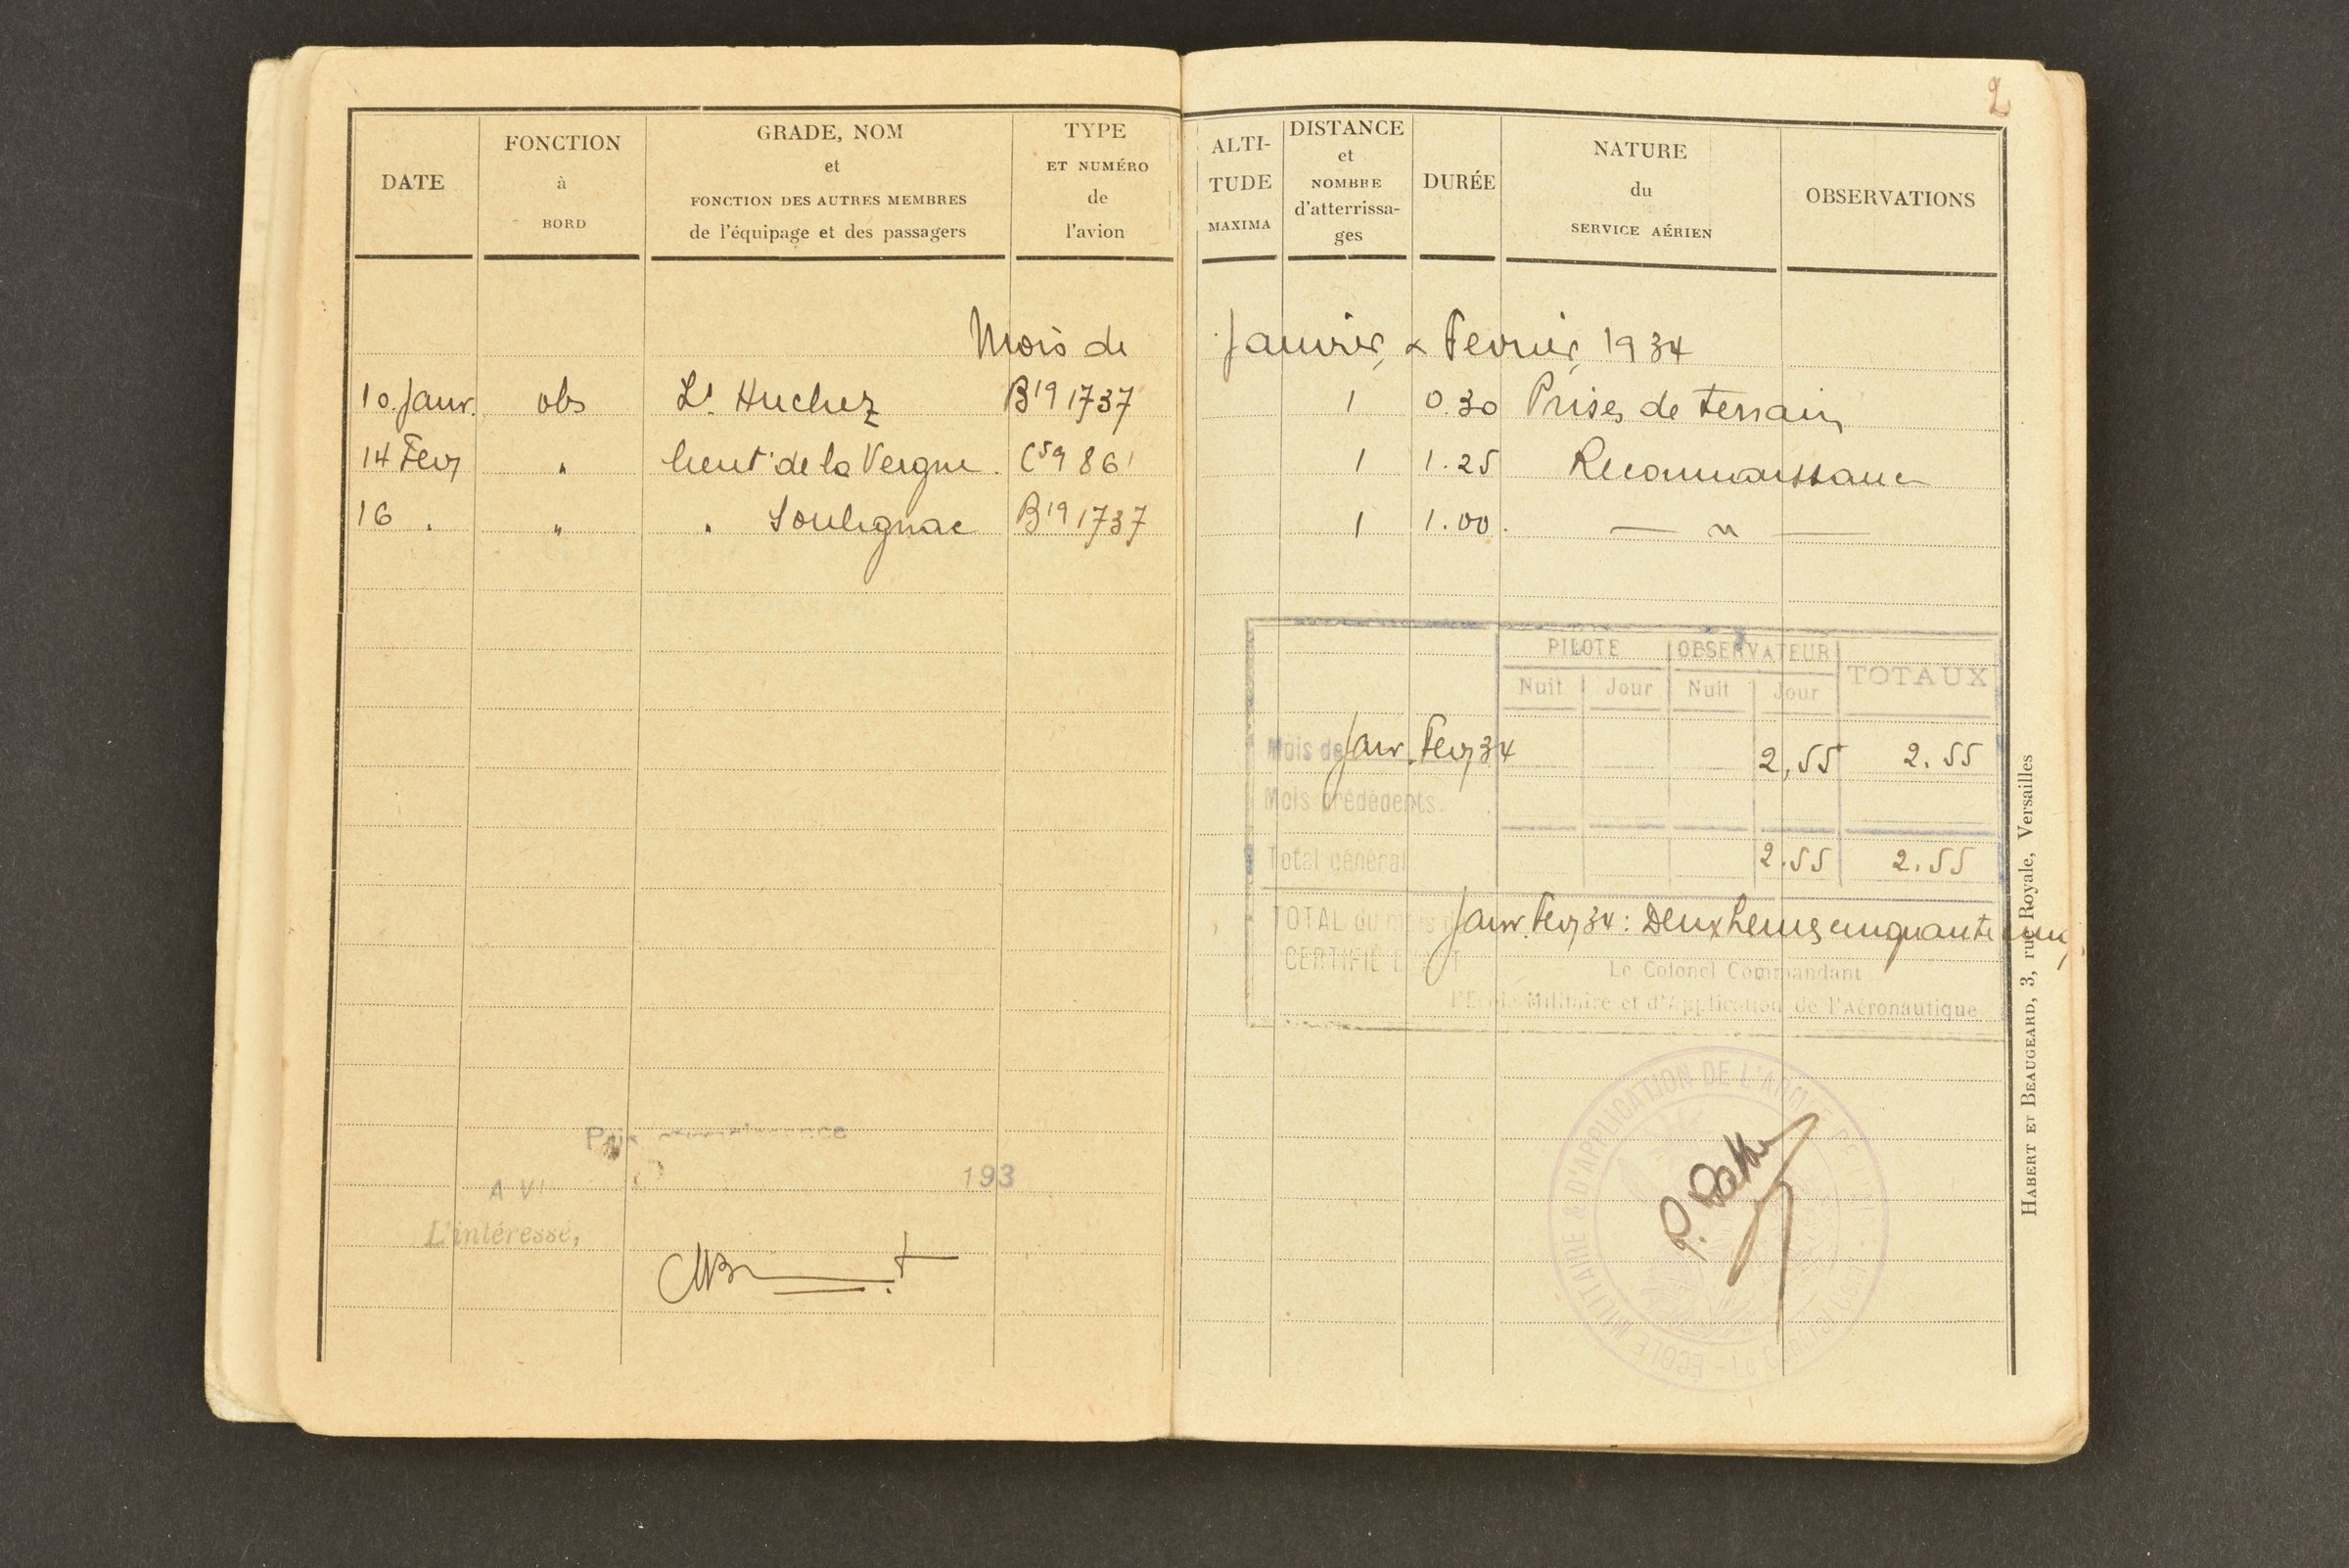 2
DATE
FONCTION
à
BORD
GRADE, NOM
et
FONCTION DES AUTRES MEMBRES
de l'équipage et des passagers
TYPE
ET NUMÉRO
de
l'avion
ALTI-
TUDE
MAXIMA
DISTANCE
et
NOMBRE
d'atterrissa-
ges
DURÉE
NATURE
du
SERVICE AÉRIEN
OBSERVATIONS
Mois de Janvier & Fevrier 1934
10 Janv. obs Lt Huchez B19 1737 1 0.30 Prises de terrain
14 Fevr " Lieut de la Vergne. 86 1 1.25 Reconnaissance
16 " " " Soulignac B19 1737 1 1.00. — " —
PILOTE OBSERVATEUR TOTAUX
Nuit Jour Nuit Jour
Mois de Janv. Fevr 34 2,55 2.55
Mois précédents.
Total général 2.55 2.55
TOTAL du mois de Janv. Fevr 34 : Deux heures cinquante cinq
CERTIFIÉ EXACT Le Colonel Commandant
l'Ecole Militaire et d'Application de l'Aéronautique
193
L'intéressé,
ECOLE MILITAIRE & D'APPLICATION DE L'ARMÉE DE L'AIR
HABERT ET BEAUGEARD, 3, rue Royale, Versailles